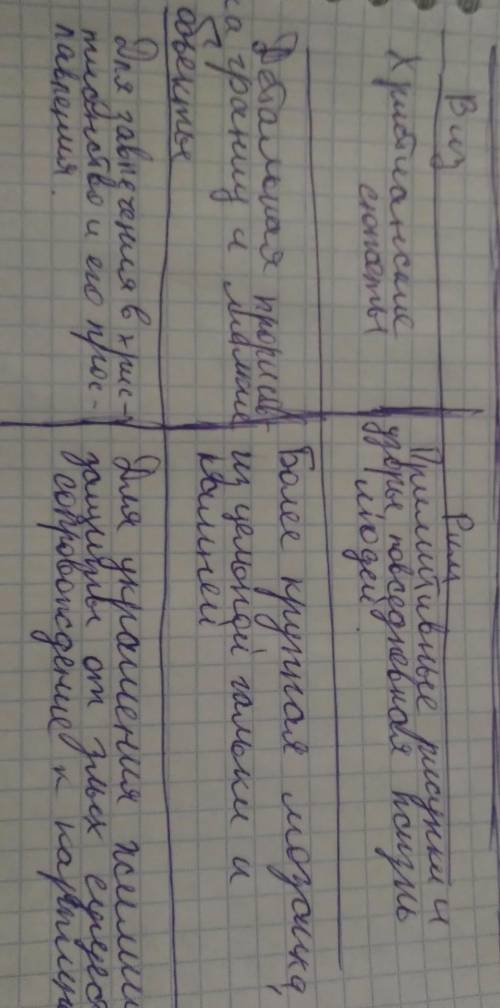 Виз
Рим
Христианские
сюжеты
Примитивные рисунки и
узоры повседневная жизнь
людей.
Детальная прорисов-
ка границ и
объекты
Более крупная мозаика,
из цельной гальки и
камней
Для завлечения в хрис-
тианство и его прос-
лавления.
Для украшения жилищ
защиты от злых сущес
сопровождение к